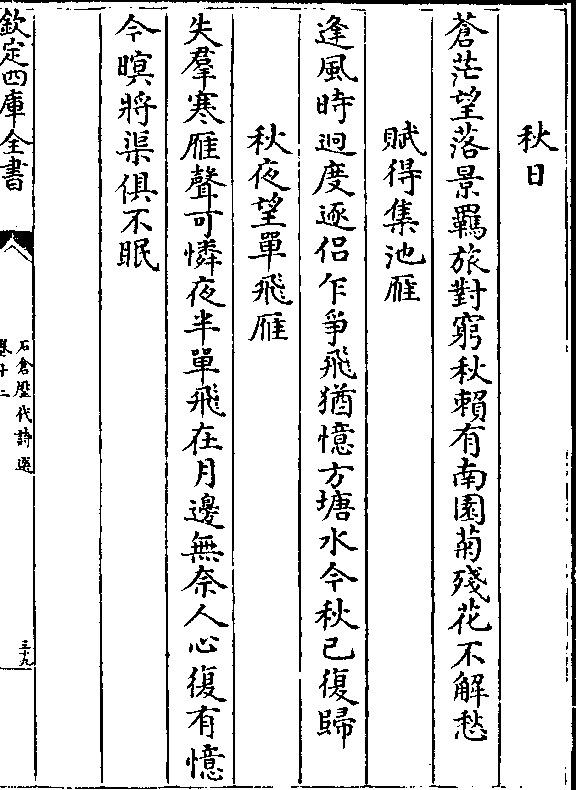 秋日
蒼茫望落景羈旅對窮秋賴有南園菊殘花不解愁
賦得集池雁
逢風時迥度逐侶乍爭飛猶憶方塘水今秋已復歸
秋夜望單飛雁
失羣寒雁聲可憐夜半單飛在月邊無奈人心復有憶
今暝將渠俱不眠
欽定四庫全書
石倉歷代詩選
卷十二
三十九